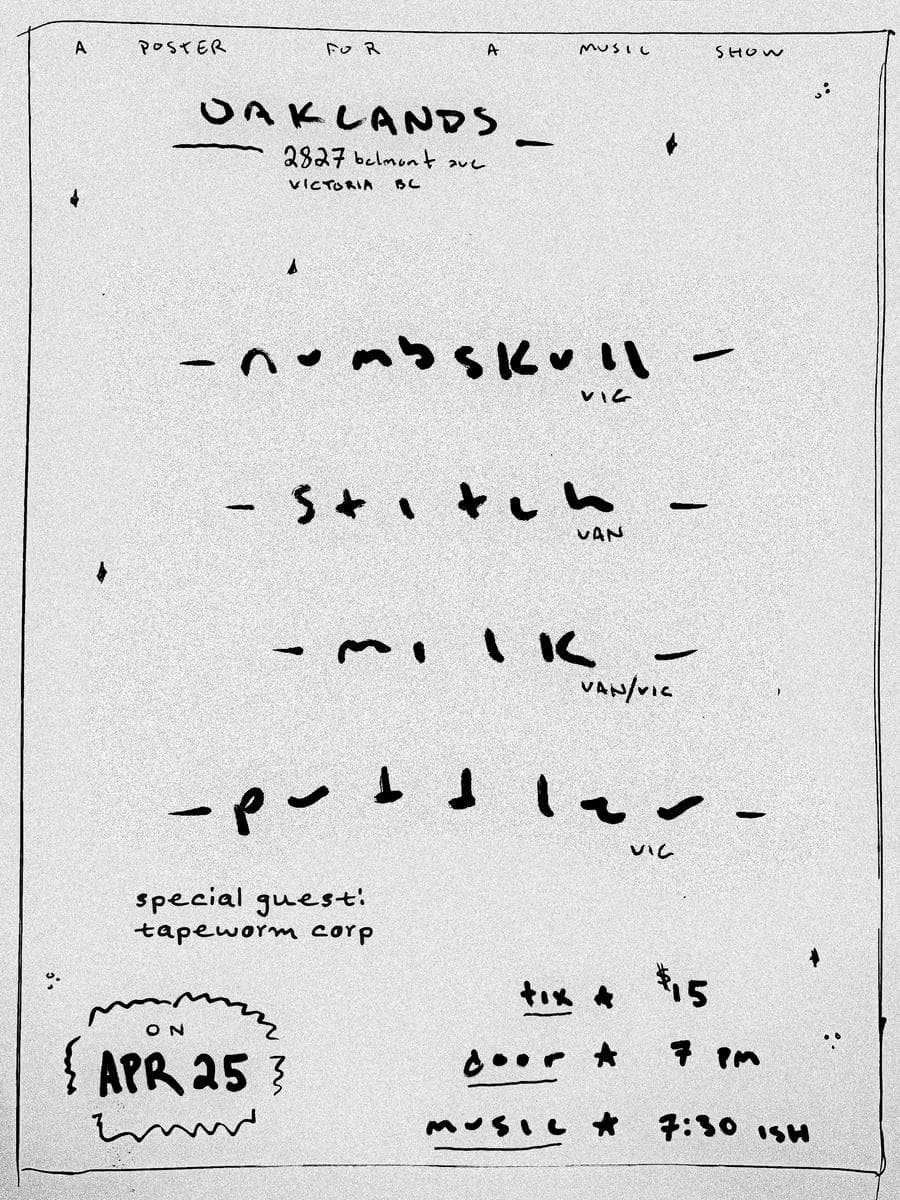 A POSTER FOR A MUSIC SHOW
OAKLANDS
2827 belmont ave
VICTORIA BC
- numbskull -
VIC
- stitch -
VAN
- milk -
VAN/VIC
- puddler -
VIC
special guest:
tapeworm corp
ON
APR 25
tix ★ $15
door ★ 7 PM
music ★ 7:30 ISH